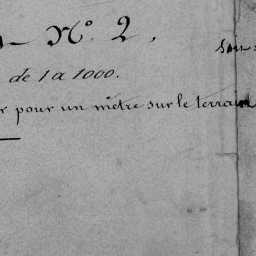 N.o 2.
de 1 a 1000.
pour un mètre sur le terrain